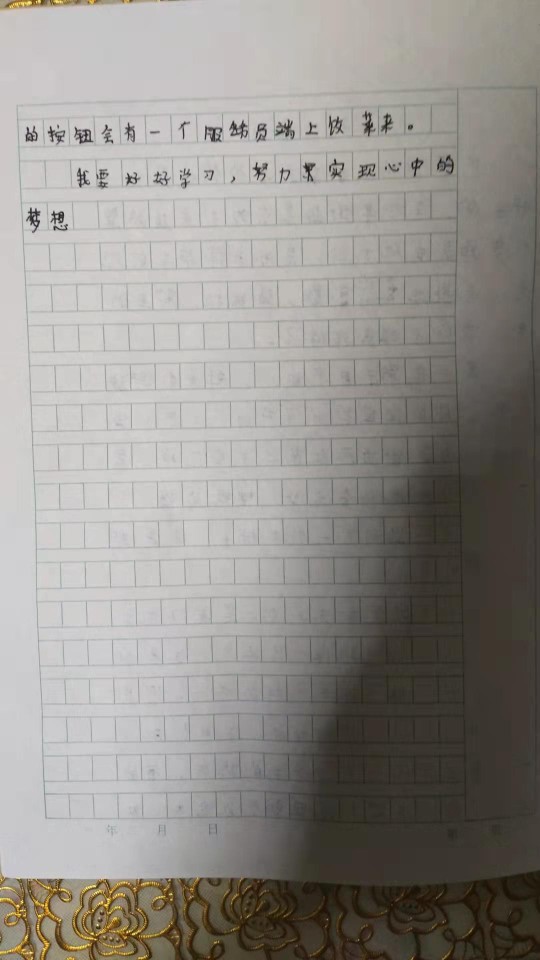 的按钮会有一个服务员端上饭菜来。
我要好好学习，努力来实现心中的
梦想
年 月 日
第 页